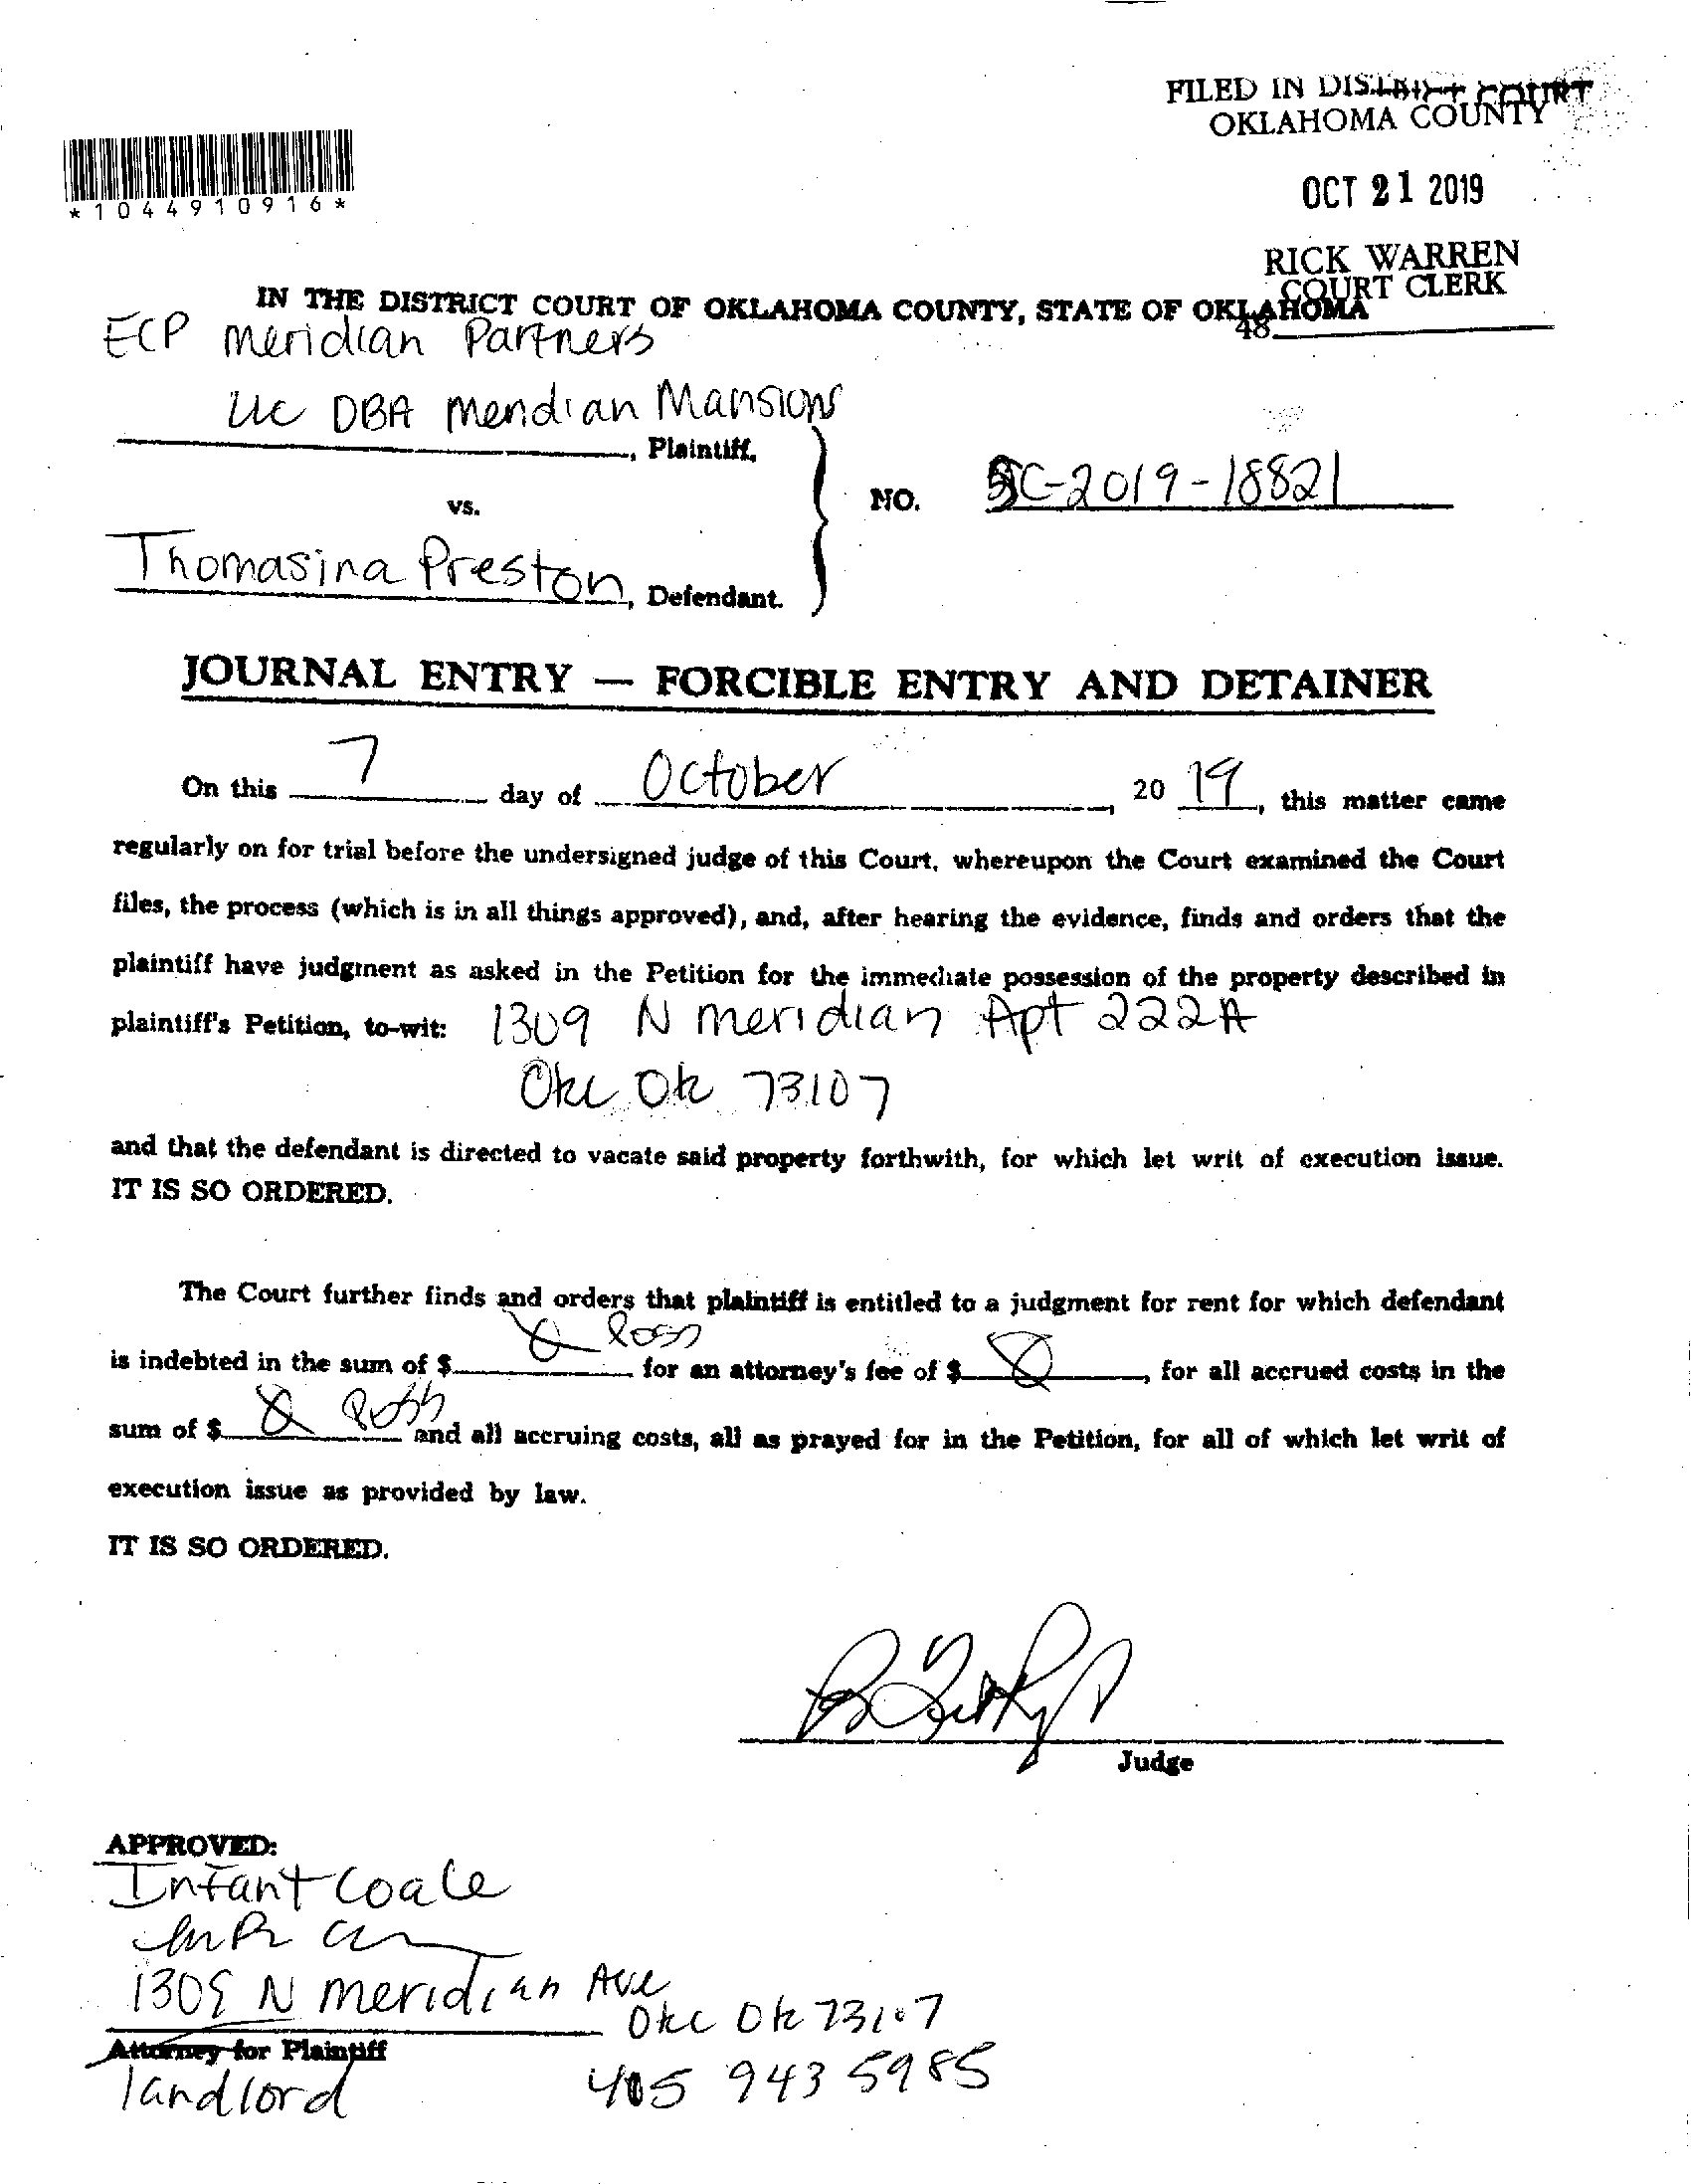 FILED IN DISTRICT COURT
OKLAHOMA COUNTY
OCT 21 2019
RICK WARREN
COURT CLERK
48
*1044910916*
IN THE DISTRICT COURT OF OKLAHOMA COUNTY, STATE OF OKLAHOMA
ECP Meridian Partners
LLC DBA Meridian Mansions
, Plaintiff,
vs.
NO. SC-2019-18821
Thomasina Preston, Defendant.
JOURNAL ENTRY — FORCIBLE ENTRY AND DETAINER
On this 7 day of October, 20 19, this matter came
regularly on for trial before the undersigned judge of this Court, whereupon the Court examined the Court
files, the process (which is in all things approved), and, after hearing the evidence, finds and orders that the
plaintiff have judgment as asked in the Petition for the immediate possession of the property described in
plaintiff's Petition, to-wit: 1309 N meridian Apt 222A
Okc Ok 73107
and that the defendant is directed to vacate said property forthwith, for which let writ of execution issue.
IT IS SO ORDERED.
The Court further finds and orders that plaintiff is entitled to a judgment for rent for which defendant
is indebted in the sum of $ for an attorney's fee of $ , for all accrued costs in the
sum of $ and all accruing costs, all as prayed for in the Petition, for all of which let writ of
execution issue as provided by law.
IT IS SO ORDERED.
Judge
APPROVED:
Infant Coale
1309 N Meridian Ave
Okc Ok 73107
Attorney for Plaintiff
landlord
405 943 5985